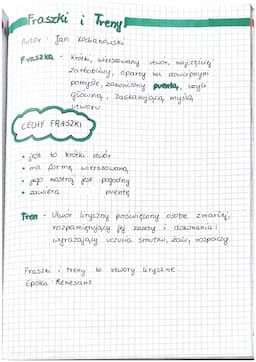 Fraszki i Treny!
Autor: Jan Kochanowski
Fraszka - krótki, wierszowany utwór, najczęściej
żartobliwy, oparty na dowcipnym
pomyśle, zakończony puentą, czyli
główną, zaskakującą myślą
utworu
CECHY FRASZKI
• jest to krótki utwór
• ma formę wierszowaną
• jego nastrój jest pogodny
• zawiera puentę
Tren - Utwór liryczny poświęcony osobie zmarłej,
rozpamiętujący jej zalety i dokonania i
wyrażający uczucia smutku, żalu, rozpaczy.
Fraszki i treny to utwory liryczne.
Epoka: Renesans